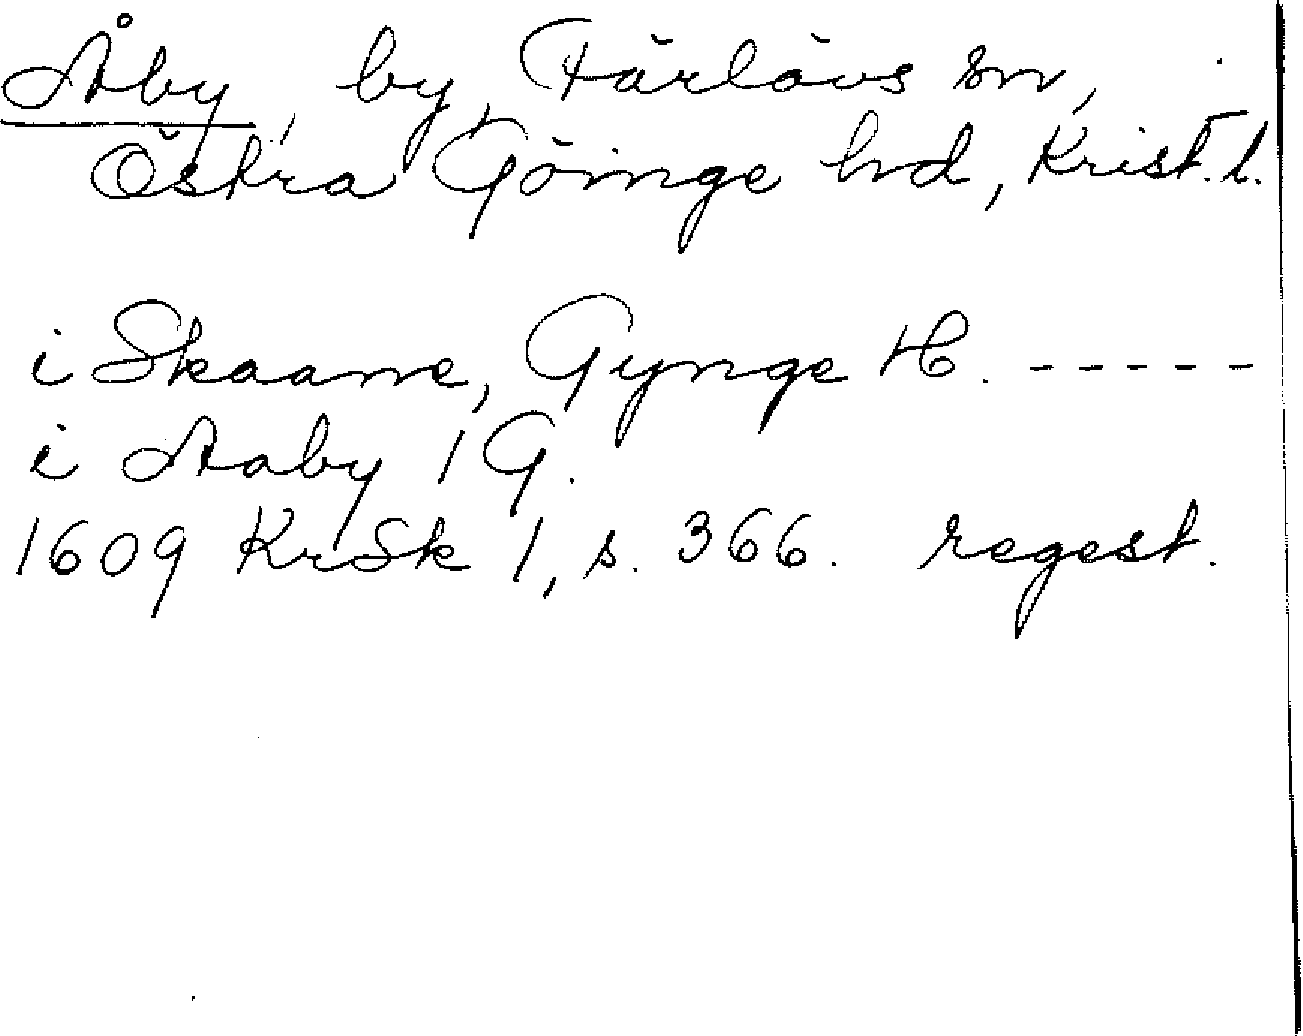 Åby, by, Färlövs sn,
Östra Göinge hd, Krist. l.
i Skaane, Gynge H. -----
i Aaby 1 G.
1609 KrSk 1, s. 366. regest.